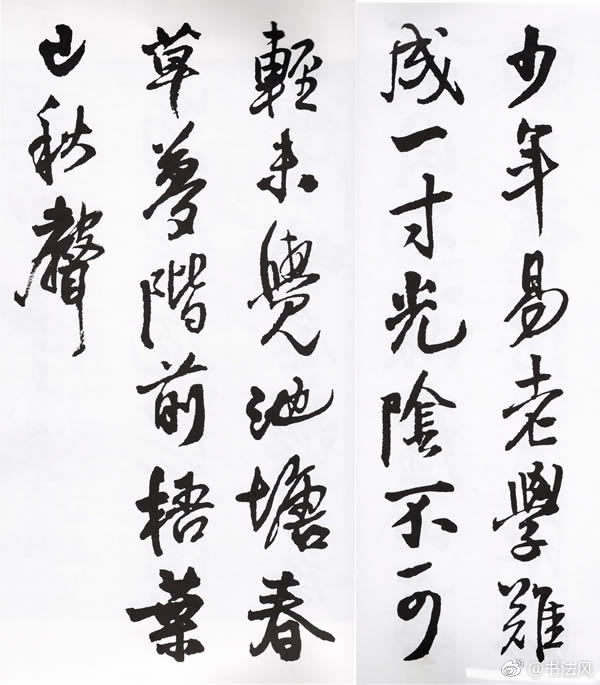 少年易老學難
成一寸光陰不可
輕未覺池塘春
草夢階前梧葉
已秋聲
@书法风